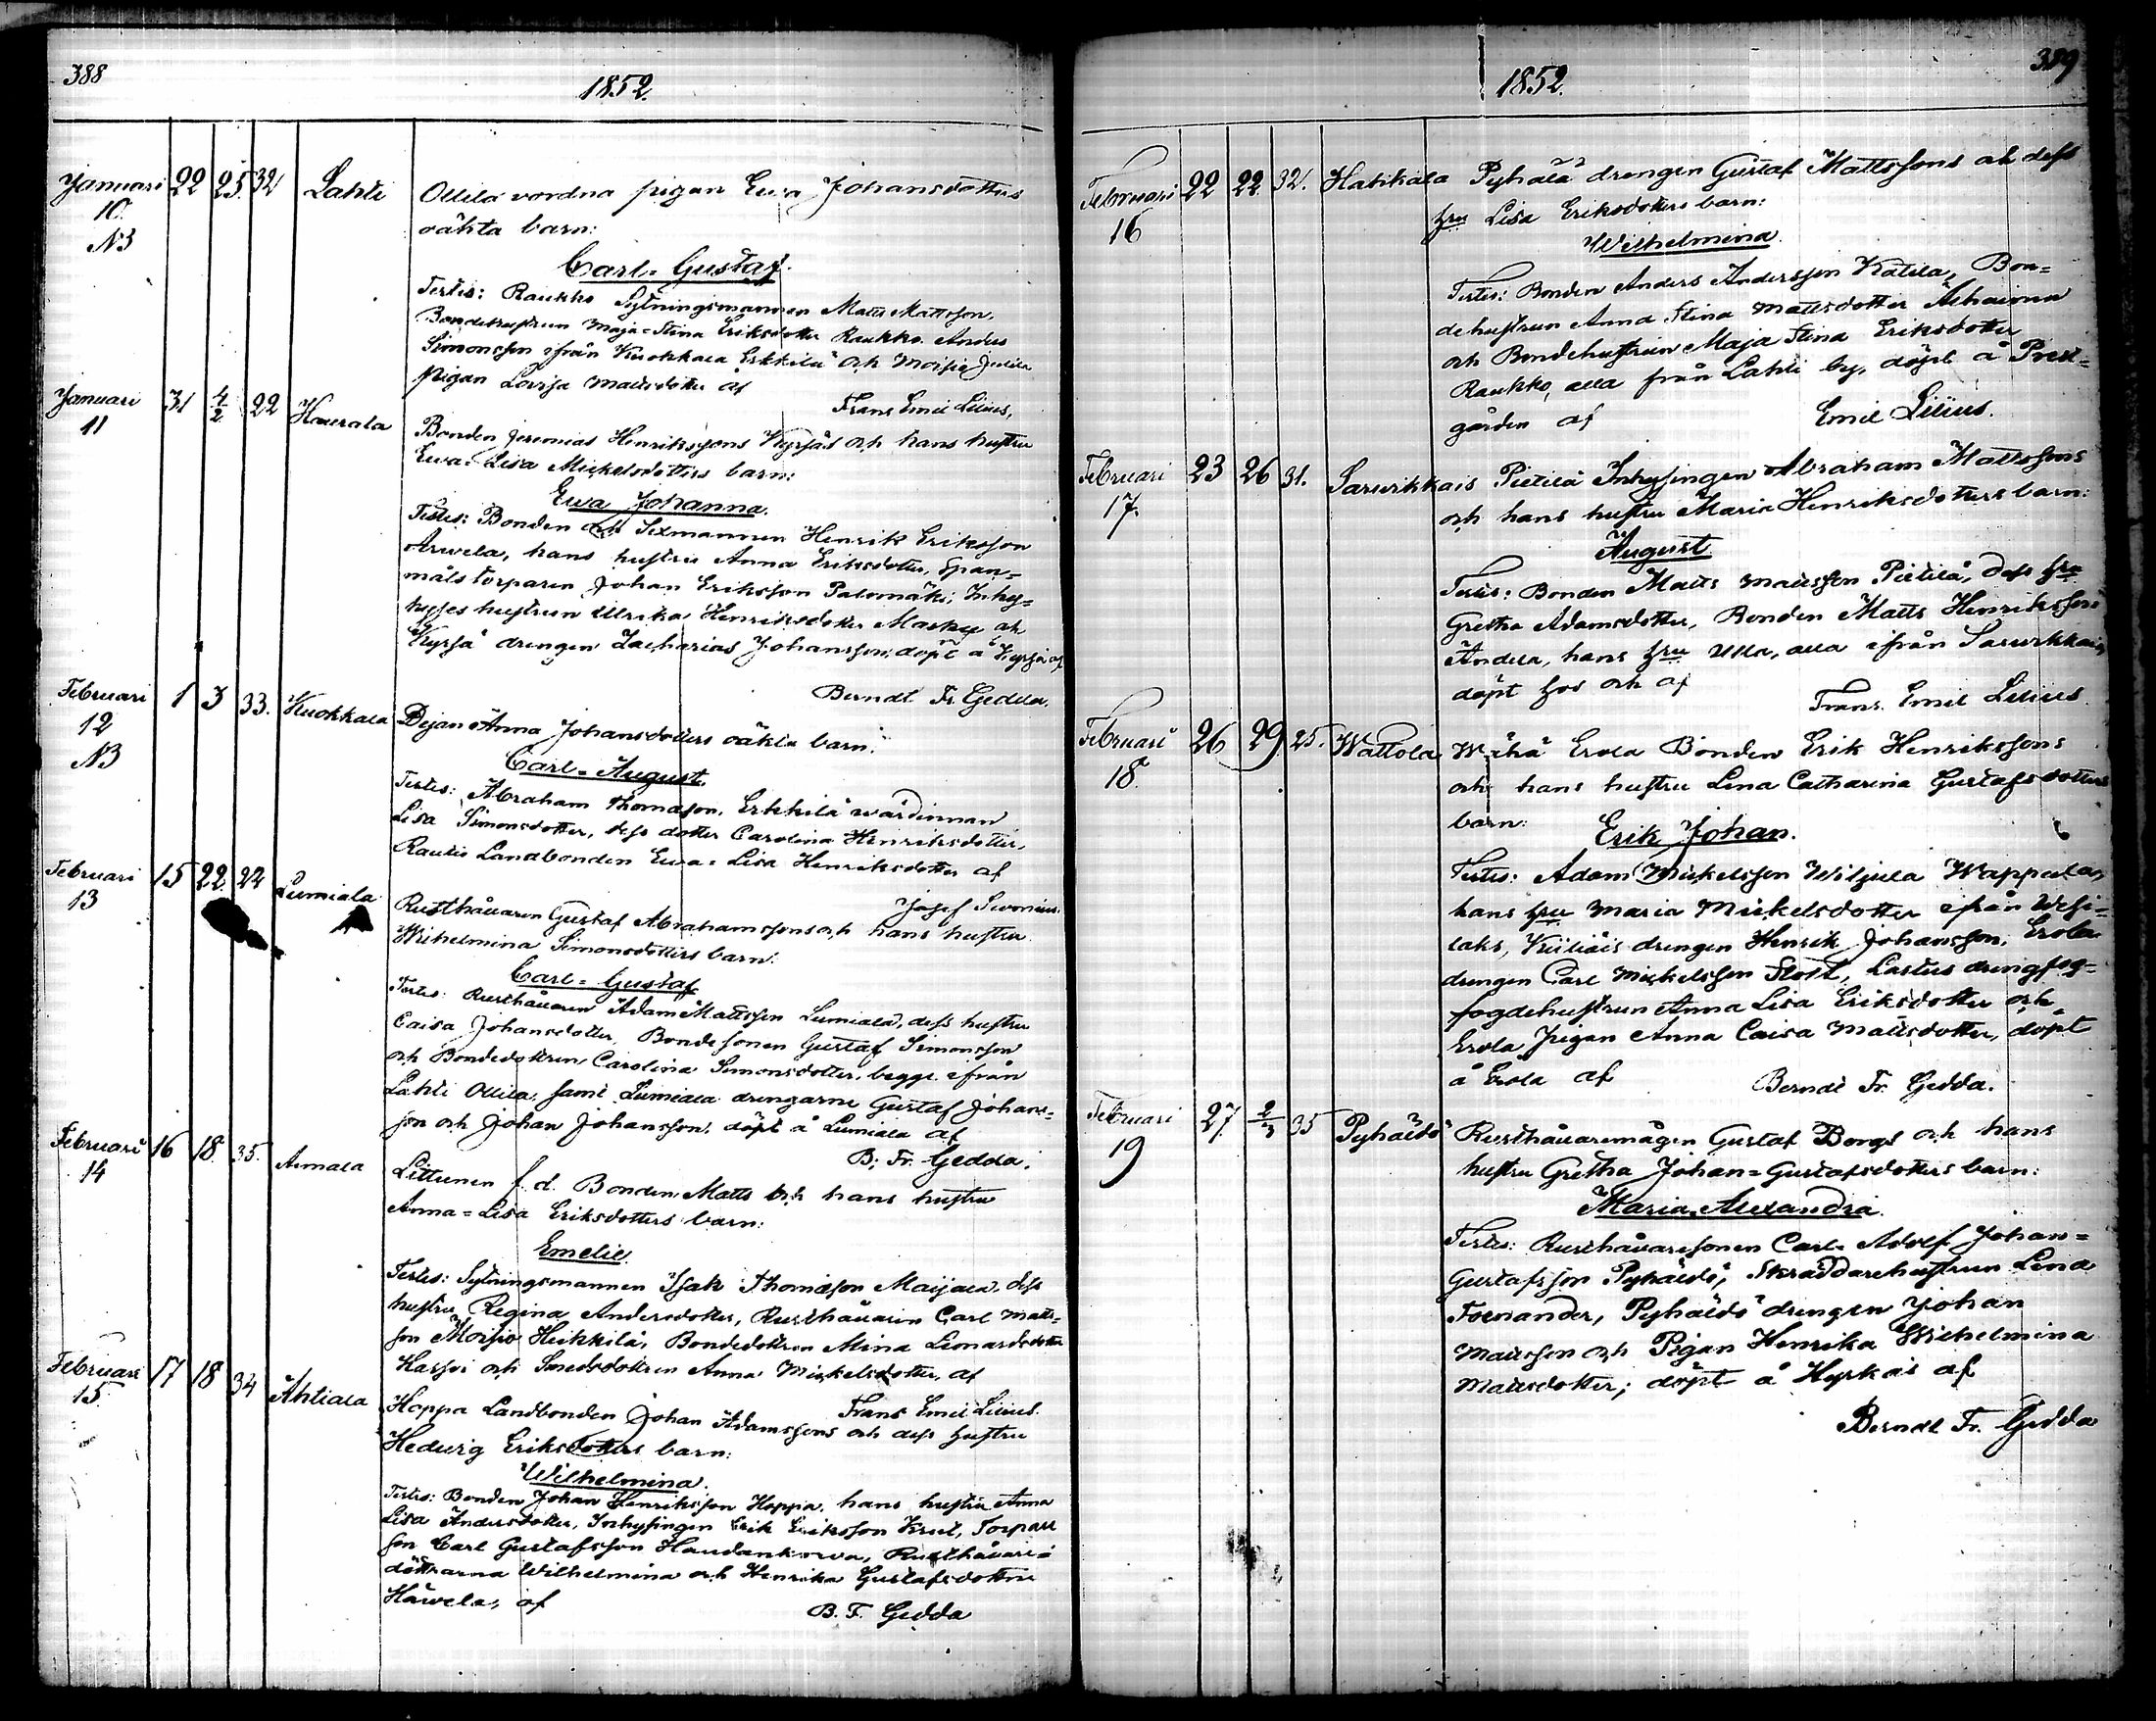 388
1852.
Januari 22 25. 32 Lahti
10.
NB
Ollila vordna pigan Ewa Johansdotters
oäkta barn:
Carl-Gustaf.
Testes: Raukko Sytningsmannen Matts Mattsson,
Bondehustrun Maja-Stina Eriksdotter Raukko. Anders
Simonsson ifrån Kuokkala Erkkilä och Moisio Jutila
pigan Lovisa Mattsdotter af
Frans Emil Lilius,
Januari 31 4/2 22 Hauerala
11
Bonden Jeremias Henrikssons Kyrsjäs och hans hustru
Ewa-Lisa Mickelsdotters barn:
Ewa Johanna.
Testes: Bonden och Sexmannen Henrik Eriksson
Arwela, hans hustru Anna Eriksdotter, Span=
måls torparen Johan Eriksson Palomäki, Inhy=
hyses hustrun Ulrika Henriksdotter Masky och
Kyrsjä drengen Zacharias Johansson, döpt å Kyrsjä af
Berndt Fr. Gedda.
Februari 1 3 33. Kuokkala
12
NB
Dejan Anna Johansdotters oäkta barn:
Carl-August.
Testes: Abraham Thomasson, Erkkilä wärdinnan
Lisa Simonsdotter, dess dotter Carolina Henriksdotter,
Rautio Landbonden Ewa-Lisa Henriksdotter af
Josef Swonius.
Februari 15 22. 22 Lumiala
13
Rusthållaren Gustaf Abrahamssons och hans hustru
Wilhelmina Simonsdotters barn:
Carl-Gustaf
Testes: Rusthållaren Adam Mattsson Lumiala, dess hustru
Caisa Johansdotter, Bondesonen Gustaf Simonsson
och Bondedottren Carolina Simonsdotter, begge ifrån
Lahti Ollila, samt Lumiala drengarne Gustaf Johans=
son och Johan Johansson, döpt å Lumiala af
B. Fr. Gedda.
Februari 16 18. 35. Aimala
14
Littunen f. d. Bonden Matts och hans hustru
Anna-Lisa Eriksdotters barn:
Emelie
Testes: Sytningsmannen Isak Thomasson Maijala, dess
hustru Regina Andersdotter, Rusthållaren Carl Matts=
son Moisio Heikkilä, Bondedottren Mina Leonardsdotter
Harjoi och Smedsdottren Anna Mickelsdotter, af
Frans Emil Lilius.
Februari 17 18 34 Ahtiala
15.
Hoppa Landbonden Johan Adamssons och dess hustru
Hedwig Eriksdotters barn:
Wilhelmina.
Testes: Bonden Johan Henriksson Hoppa, hans hustru Anna
Lisa Andersdotter, Inhysingen Erik Eriksson Krut, Torpare
son Carl Gustafsson Haudankorva, Rusthållare=
döttrarna Wilhelmina och Henrika Gustafsdotter
Häwela, af
B. F. Gedda
389
1852.
Februari 22 22. 32. Hatikala
16
Pyhälä drengen Gustaf Mattssons och dess
hru Lisa Eriksdotters barn:
Wilhelmina.
Testes: Bonden Anders Andersson Katila, Bon=
dehustrun Anna Stina Mattsdotter
och Bondehustrun Maja Stina Eriksdotter
Raukko, alla från Lahti by, döpt å Prest=
gården af
Emil Lilius.
Februari 23 26 31. Saruikkais
17.
Pietilä Inhysingen Abraham Mattssons
och hans hustru Maria Henriksdotters barn:
August.
Testes: Bonden Matts Mattsson Pietilä, dess hru
Gretha Adamsdotter, Bonden Matts Henriksson
Andela, hans hru Ulla, alla ifrån Saruikkais,
döpt hos och af
Frans. Emil Lilius.
Februari 26 29 25. Wattola
18.
Wähä Erola Bonden Erik Henrikssons
och hans hustru Lena Catharina Gustafsdotters
barn:
Erik Johan.
Testes: Adam Mickelsson Wiljula Wappula,
hans hru Maria Mickelsdotter ifrån Wesi=
laks, Kiiliäis drengen Henrik Johansson, Erola
drengen Carl Mickelsson Stost, Lastus drengfog=
fogdehustrun Anna Lisa Eriksdotter och
Erola Pigan Anna Caisa Mattsdotter, döpt
å Erola af
Berndt Fr. Gedda.
Februari 27. 2/3 35 Pyhältö
19
Rusthållaremågen Gustaf Borgs och hans
hustru Gretha Johan=Gustafsdotters barn:
Maria Alexandra.
Testes: Rusthållaresonen Carl Adolf Johan=
Gustafsson Pyhältö, Skräddarehustrun Lena
Forsnander, Pyhältö drengen Johan
Mattsson och Pigan Henrika Wilhelmina
Mattsdotter; döpt å Hyrkäs af
Berndt Fr. Gedda